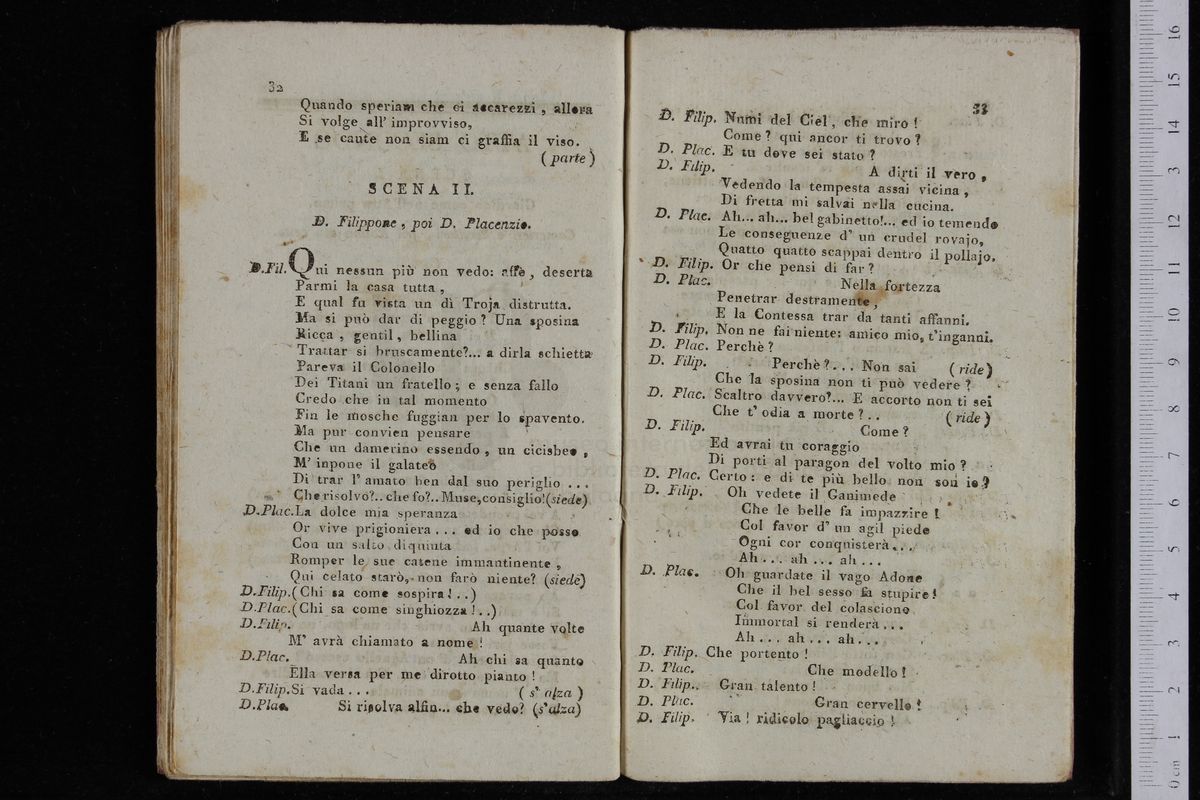 32
Quando speriam che ci accarezzi, allora
Si volge all' improvviso,
E se caute non siam ci graffia il viso.
(parte)
SCENA II.
D. Filippone, poi D. Placenzio.
D.Fil. Qui nessun più non vedo: affè, deserta
Parmi la casa tutta,
E qual fu vista un dì Troja distrutta.
Ma si può dar di peggio? Una sposina
Ricca, gentil, bellina
Trattar si bruscamente?... a dirla schietta
Pareva il Colonello
Dei Titani un fratello; e senza fallo
Credo che in tal momento
Fin le mosche fuggian per lo spavento.
Ma pur convien pensare
Che un damerino essendo, un cicisbeo,
M' inpone il galateo
Di trar l' amato ben dal suo periglio ...
Che risolvo?.. che fo?.. Muse, consiglio! (siede)
D.Plac. La dolce mia speranza
Or vive prigioniera... ed io che posso
Con un salto di quinta
Romper le sue catene immantinente,
Qui celato starò, non farò niente? (siede)
D.Filip. (Chi sa come sospira!..)
D.Plac. (Chi sa come singhiozza!..)
D.Filip. Ah quante volte
M' avrà chiamato a nome!
D.Plac. Ah chi sa quanto
Ella versa per me dirotto pianto!
D.Filip. Si vada... (s' alza)
D.Plac. Si risolva alfin... che vedo? (s'alza)
33
D. Filip. Numi del Ciel, che miro!
Come? qui ancor ti trovo?
D. Plac. E tu dove sei stato?
D. Filip. A dirti il vero,
Vedendo la tempesta assai vicina,
Di fretta mi salvai nella cucina.
D. Plac. Ah... ah... bel gabinetto!... ed io temendo
Le conseguenze d' un crudel rovajo,
Quatto quatto scappai dentro il pollajo.
D. Filip. Or che pensi di far?
D. Plac. Nella fortezza
Penetrar destramente,
E la Contessa trar da tanti affanni.
D. Filip. Non ne fai niente: amico mio, t'inganni.
D. Plac. Perchè?
D. Filip. Perchè?... Non sai (ride)
Che la sposina non ti può vedere?
D. Plac. Scaltro davvero!... E accorto non ti sei
Che t' odia a morte?.. (ride)
D. Filip. Come?
Ed avrai tu coraggio
Di porti al paragon del volto mio?
D. Plac. Certo: e di te più bello non son io?
D. Filip. Oh vedete il Ganimede
Che le belle fa impazzire!
Col favor d' un agil piede
Ogni cor conquisterà...
Ah... ah... ah...
D. Plac. Oh guardate il vago Adone
Che il bel sesso fa stupire!
Col favor del colascione
Immortal si renderà...
Ah... ah... ah...
D. Filip. Che portento!
D. Plac. Che modello!
D. Filip.. Gran talento!
D. Plac. Gran cervello!
D. Filip. Via! ridicolo pagliaccio!
0 cm 1 2 3 4 5 6 7 8 9 10 11 12 13 14 15 16